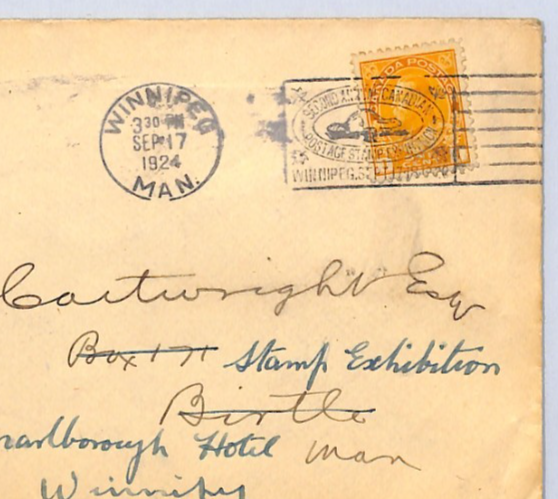 WINNIPEG
3 30 PM
SEP 17
1924
MAN.
CANADA POSTAGE
SECOND ALL CANADIAN
POSTAGE STAMP EXHIBITION
WINNIPEG, SEPT
Cartwright Esq
Box 171 Stamp Exhibition
Birtle
Marlborough Hotel Man
Winnipeg